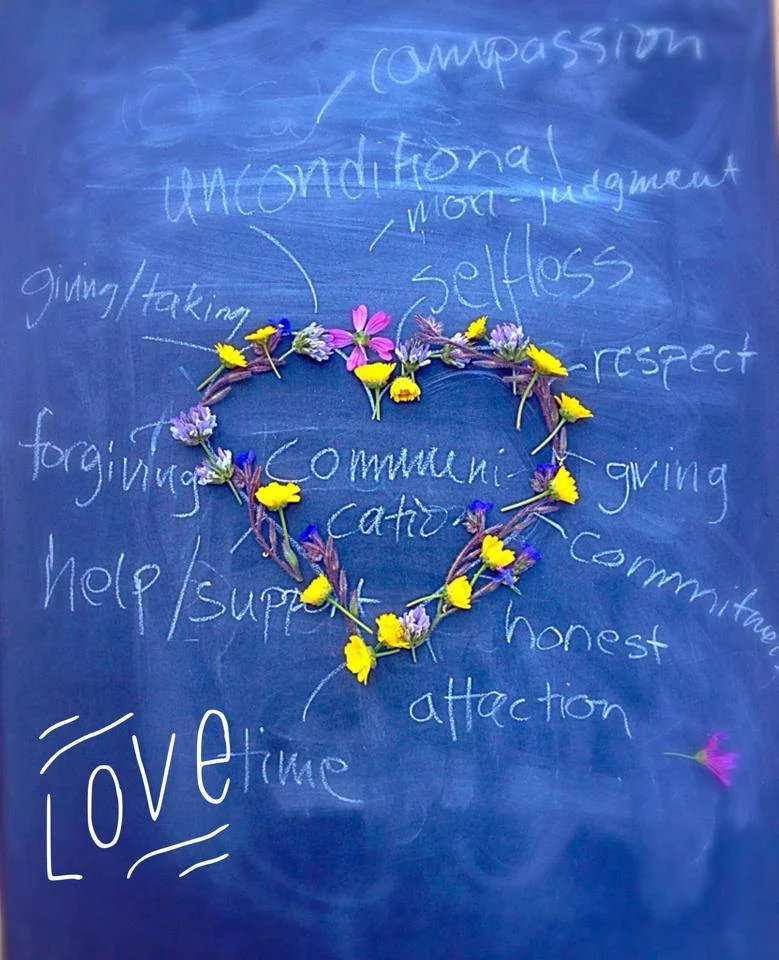 compassion
unconditional
non-judgment
selfless
giving/taking
respect
forgiving
Communi-
catio
giving
help/support
commitmen
honest
affection
time
LOVe